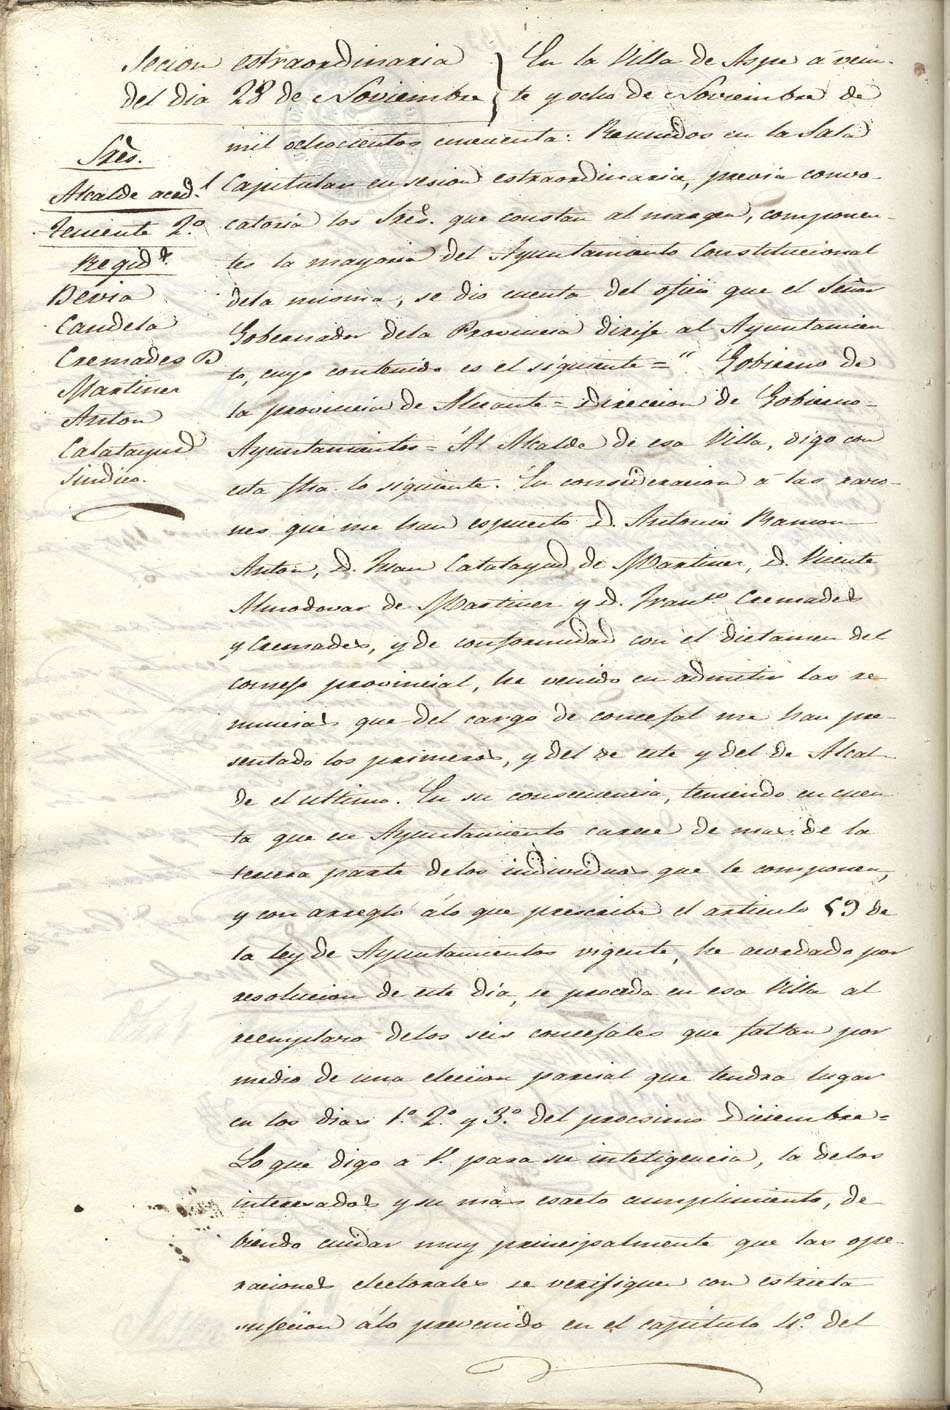 Secion estraordinaria
del dia 28 de Noviembre
Sres.
Alcalde accd.l
Teniente 2.o
Regid.s
Devia
Candela
Cremades D
Martinez
Anton
Calatayud
Sindico.
En la Villa de Aspe á vein-
te y ocho de Noviembre de
mil ochocientos cincuenta: Reunidos en la Sala
Capitular en sesion estraordinaria, previa convo-
catoria los Sres. que constan al margen, componen-
tes la mayoria del Ayuntamiento Constitucional
dela misma, se dio cuenta del oficio que el Señor
Gobernador dela Provincia dirije al Ayuntamien
to, cuyo contenido es el siguiente = " Gobierno de
la provincia de Alicante = Direccion de Gobierno =
Ayuntamientos = Al Alcalde de esa Villa, digo con
esta fha. lo siguiente. En consideracion á las razo-
nes que me han espuesto D. Antonio Ramon
Anton, D. Juan Calatayud de Martinez, D. Vicente
Almodovar de Martinez y D. Fran.co Cremades
y Cremades, y de conformidad con el dictamen del
consejo provincial, he venido en admitir las re
nuncias que del cargo de concejal me han pre-
sentado los primeros, y del de este y del de Alcal-
de el ultimo. En su consecuencia, teniendo en cuen
ta que ese Ayuntamiento carece de mas de la
tercera parte delos individuos que le componen,
y con arreglo álo que prescribe el articulo 59 de
la ley de Ayuntamientos vigente, he acordado por
resolucion de este dia, se proceda en esa Villa al
reemplazo delos seis concejales que faltan por
medio de una eleccion parcial que tendra lugar
en los dias 1.o 2.o y 3.o del procsimo Diciembre =
Lo que digo á V. para su inteligencia, la delos
interesados y su mas esacto cumplimiento, de
biendo cuidar muy principalmente que las ope-
raciones electorales se verifiquen con estricta
sujecion álo prevenido en el capitulo 4.o del